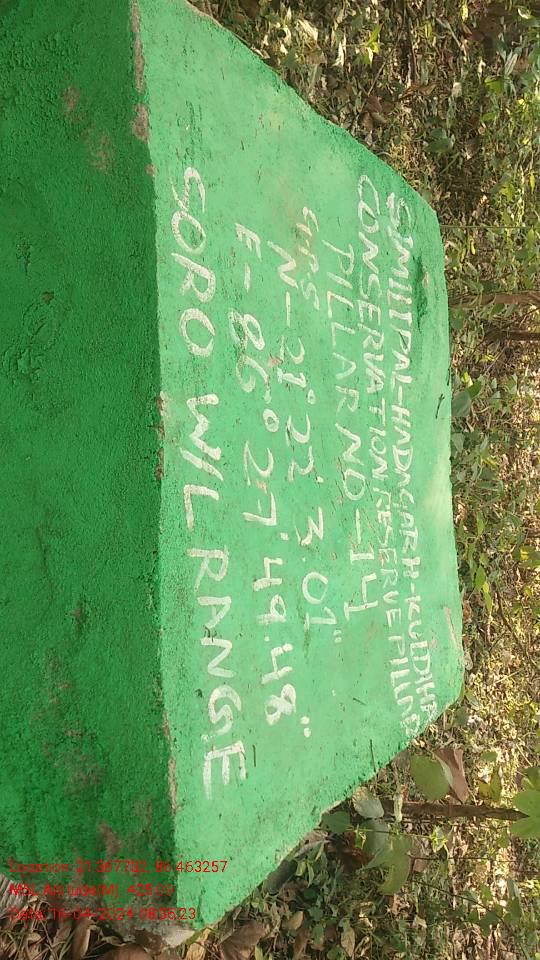 SIMILIPAL-HADAGARH-KULDIHA
CONSERVATION RESERVE PILLAR
PILLAR NO-14
GPS
N-21° 22' 3.07"
E-86° 27' 49.48"
SORO W/L RANGE
Location: 21.367792, 86.463257
MSL Altitude(M): 425.09
Date: 16-04-2024 08:36:23